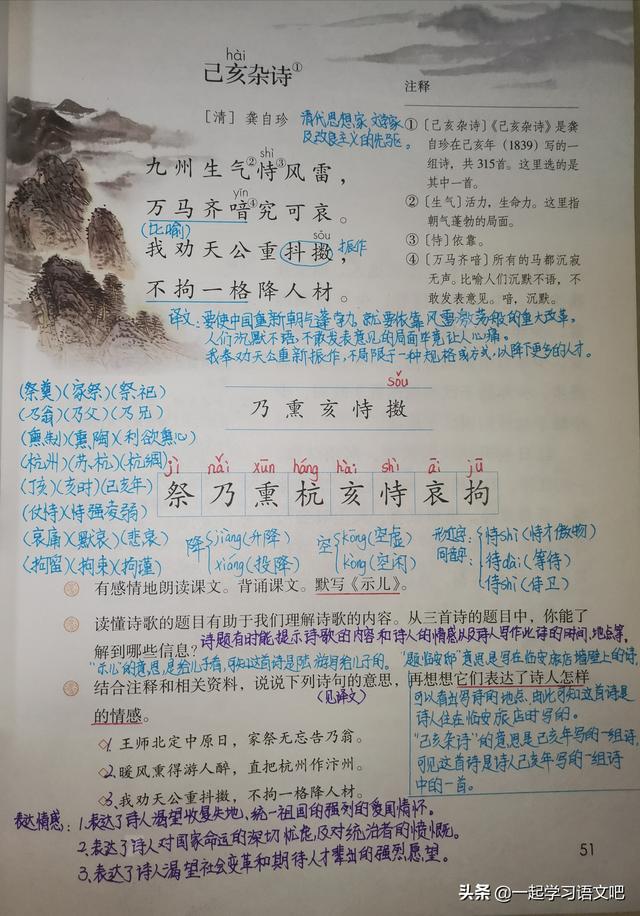 hài
己亥杂诗①
[清] 龚自珍
清代思想家、文学家
及改良主义的先驱。
shì
九州生气②恃③风雷，
yīn
万马齐喑④究可哀。
(比喻)
sǒu
我劝天公重抖擞，
振作
不拘一格降人材。
注释
①〔己亥杂诗〕《己亥杂诗》是龚
自珍在己亥年（1839）写的一
组诗，共315首。这里选的是
其中一首。
②〔生气〕活力，生命力。这里指
朝气蓬勃的局面。
③〔恃〕依靠。
④〔万马齐喑〕所有的马都沉寂
无声。比喻人们沉默不语，不
敢发表意见。喑，沉默。
译文：要使中国重新朝气蓬勃，就要依靠风雷激荡般的重大改革。
人们沉默不语，不敢发表意见的局面毕竟让人心痛。
我奉劝天公重新振作，不局限于一种规格或方式，以降下更多的人才。
sǒu
乃熏亥恃擞
(祭奠)(家祭)(祭祀)
(乃翁)(乃父)(乃兄)
(熏制)(熏陶)(利欲熏心)
(杭州)(苏杭)(杭绸)
(丁亥)(亥时)(己亥年)
(仗恃)(恃强凌弱)
(哀痛)(默哀)(悲哀)
(拘留)(拘束)(拘谨)
jì nǎi xūn háng hài shì āi jū
祭乃熏杭亥恃哀拘
降 jiàng(升降)
xiáng(投降)
空 kōng(空虚)
kòng(空闲)
形近字 恃shì(恃才傲物)
同音字 待dài(等待)
侍shì(侍卫)
有感情地朗读课文。背诵课文。默写《示儿》。
读懂诗歌的题目有助于我们理解诗歌的内容。从三首诗的题目中，你能了
解到哪些信息？
诗题有时能提示诗歌的内容和诗人的情感以及诗人写作此诗的时间、地点等。
"示儿"的意思是给儿子看，可知这首诗是陆游写给儿子的。
"题临安邸"意思是写在临安旅店墙壁上的诗，
可以看出写诗的地点，由此可知这首诗是
诗人住在临安旅店时写的。
"己亥杂诗"的意思是己亥年写的一组诗，
可见这首诗是诗人己亥年写的一组诗
中的一首。
结合注释和相关资料，说说下列诗句的意思，再想想它们表达了诗人怎样
的情感。
(见译文)
1. 王师北定中原日，家祭无忘告乃翁。
2. 暖风熏得游人醉，直把杭州作汴州。
3. 我劝天公重抖擞，不拘一格降人材。
表达情感：1、表达了诗人渴望收复失地、统一祖国的强烈的爱国情怀。
2、表达了诗人对国家命运的深切忧虑及对统治者的愤慨。
3、表达了诗人渴望社会变革和期待人才辈出的强烈愿望。
51
头条 @一起学习语文吧